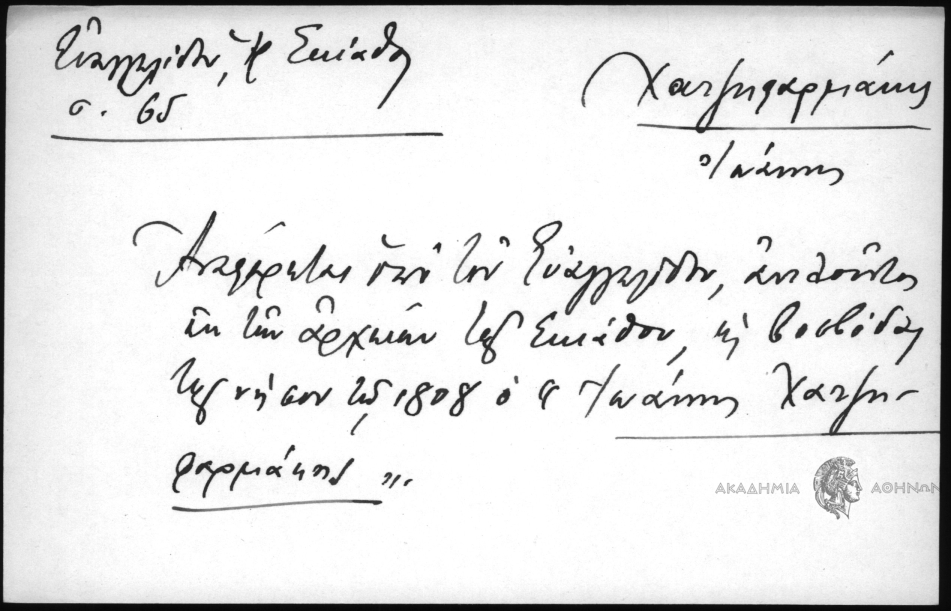 Εὐαγγελίδου, Ἡ Σκιάθος
σ. 65
Χατζηφαρμάκης
Ἰωάννης
Ἀναφέρεται ὑπὸ τοῦ Εὐαγγελίδου, ἀντλοῦντος
ἐκ τῶν ἀρχείων τῆς Σκιάθου, ὡς βοεβόδας
τῆς νήσου τῷ 1808 ὁ " Ἰωάννης Χατζη-
φαρμάκης ".
ΑΚΑΔΗΜΙΑ ΑΘΗΝΩΝ